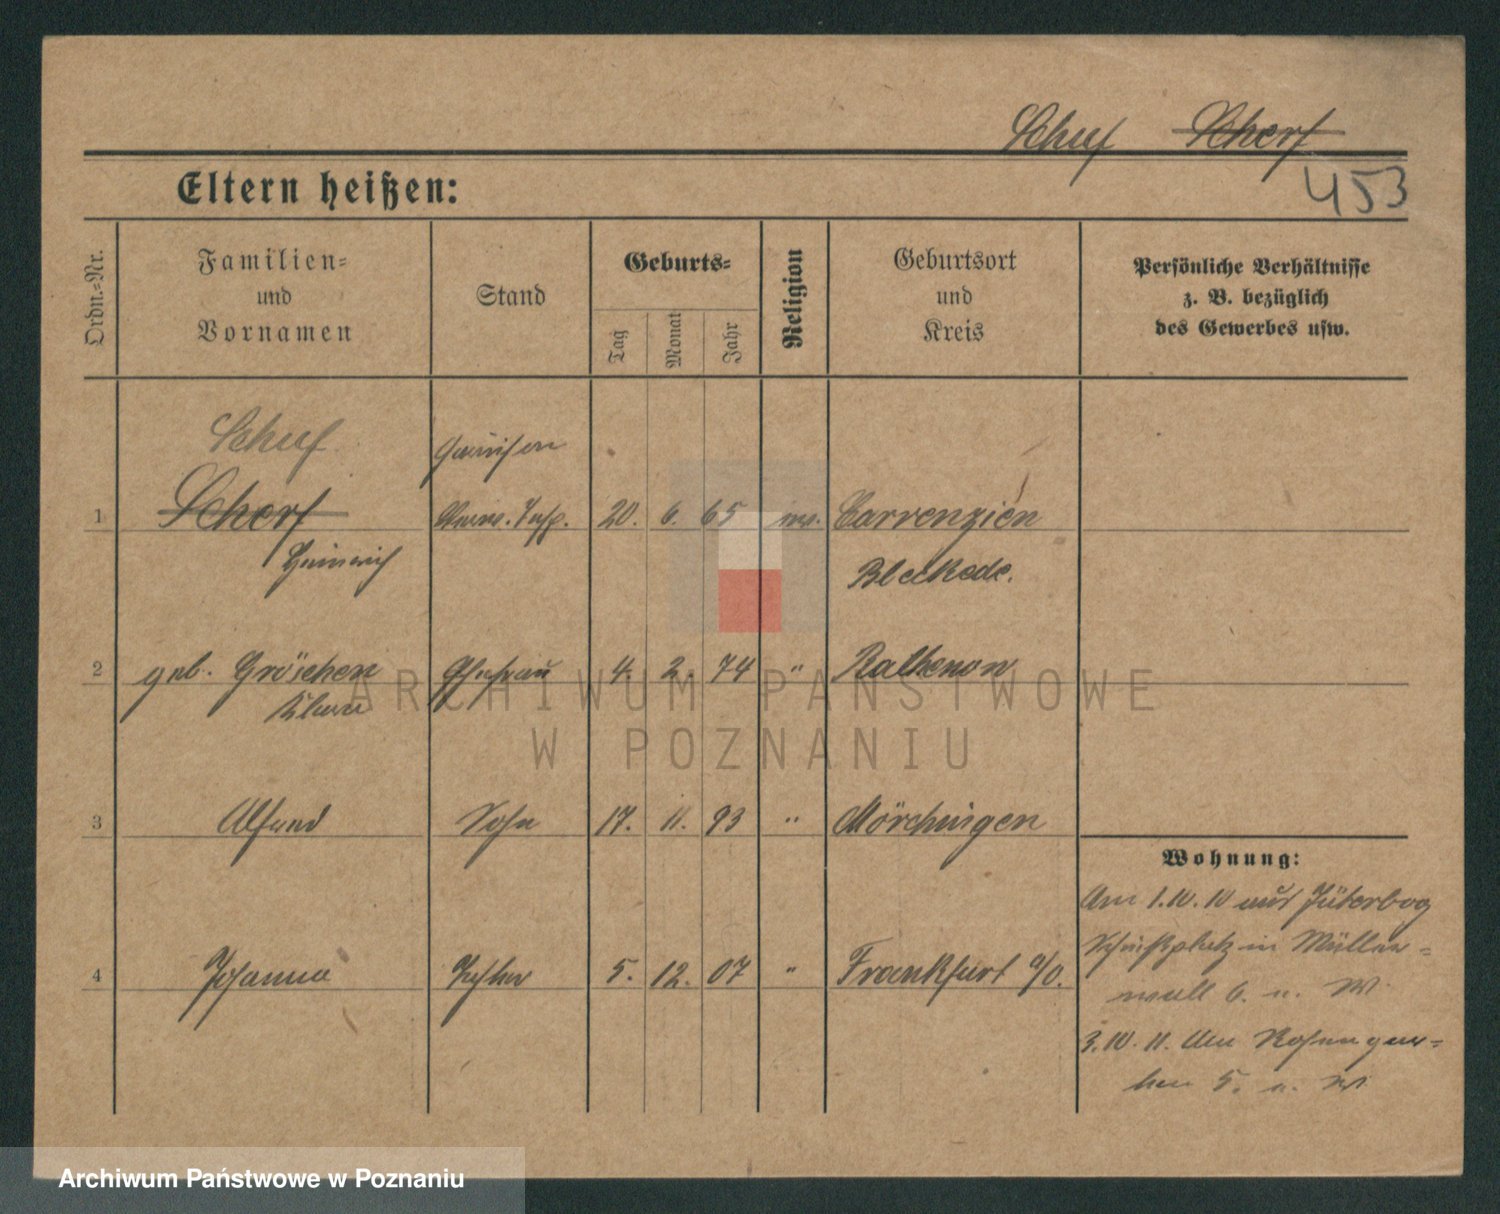 Schuf Scherf
453
Eltern heißen:
Ordn.-Nr.
Familien-
und
Vornamen
Stand
Geburts-
Tag
Monat
Jahr
Religion
Geburtsort
und
Kreis
Persönliche Verhältnisse
z. B. bezüglich
des Gewerbes usw.
Schuf Garnison
1 Scherf Verw. Insp. 20. 6. 65 Carrenzien
Heinrich Bleckede.
2 geb. Gröschen Ehefrau 4. 2. 74 " Rathenow
Klara
3 Alfred Sohn 17. 11. 93 " Mörchingen
Wohnung:
Am 1.10.10 aus Jüterbog
Schießplatz in Müller-
4 Johanna Tochter 5. 12. 07 " Frankfurt a/O.
wall 6. n. W.
3.10.11. Am Rosengar-
ten 5. n. W
ARCHIWUM PAŃSTWOWE
W POZNANIU
Archiwum Państwowe w Poznaniu